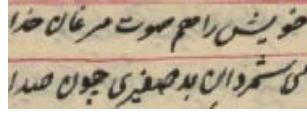 خویش را هم صوت مرغان خدا
می شمردان بد صفیری چون صدا